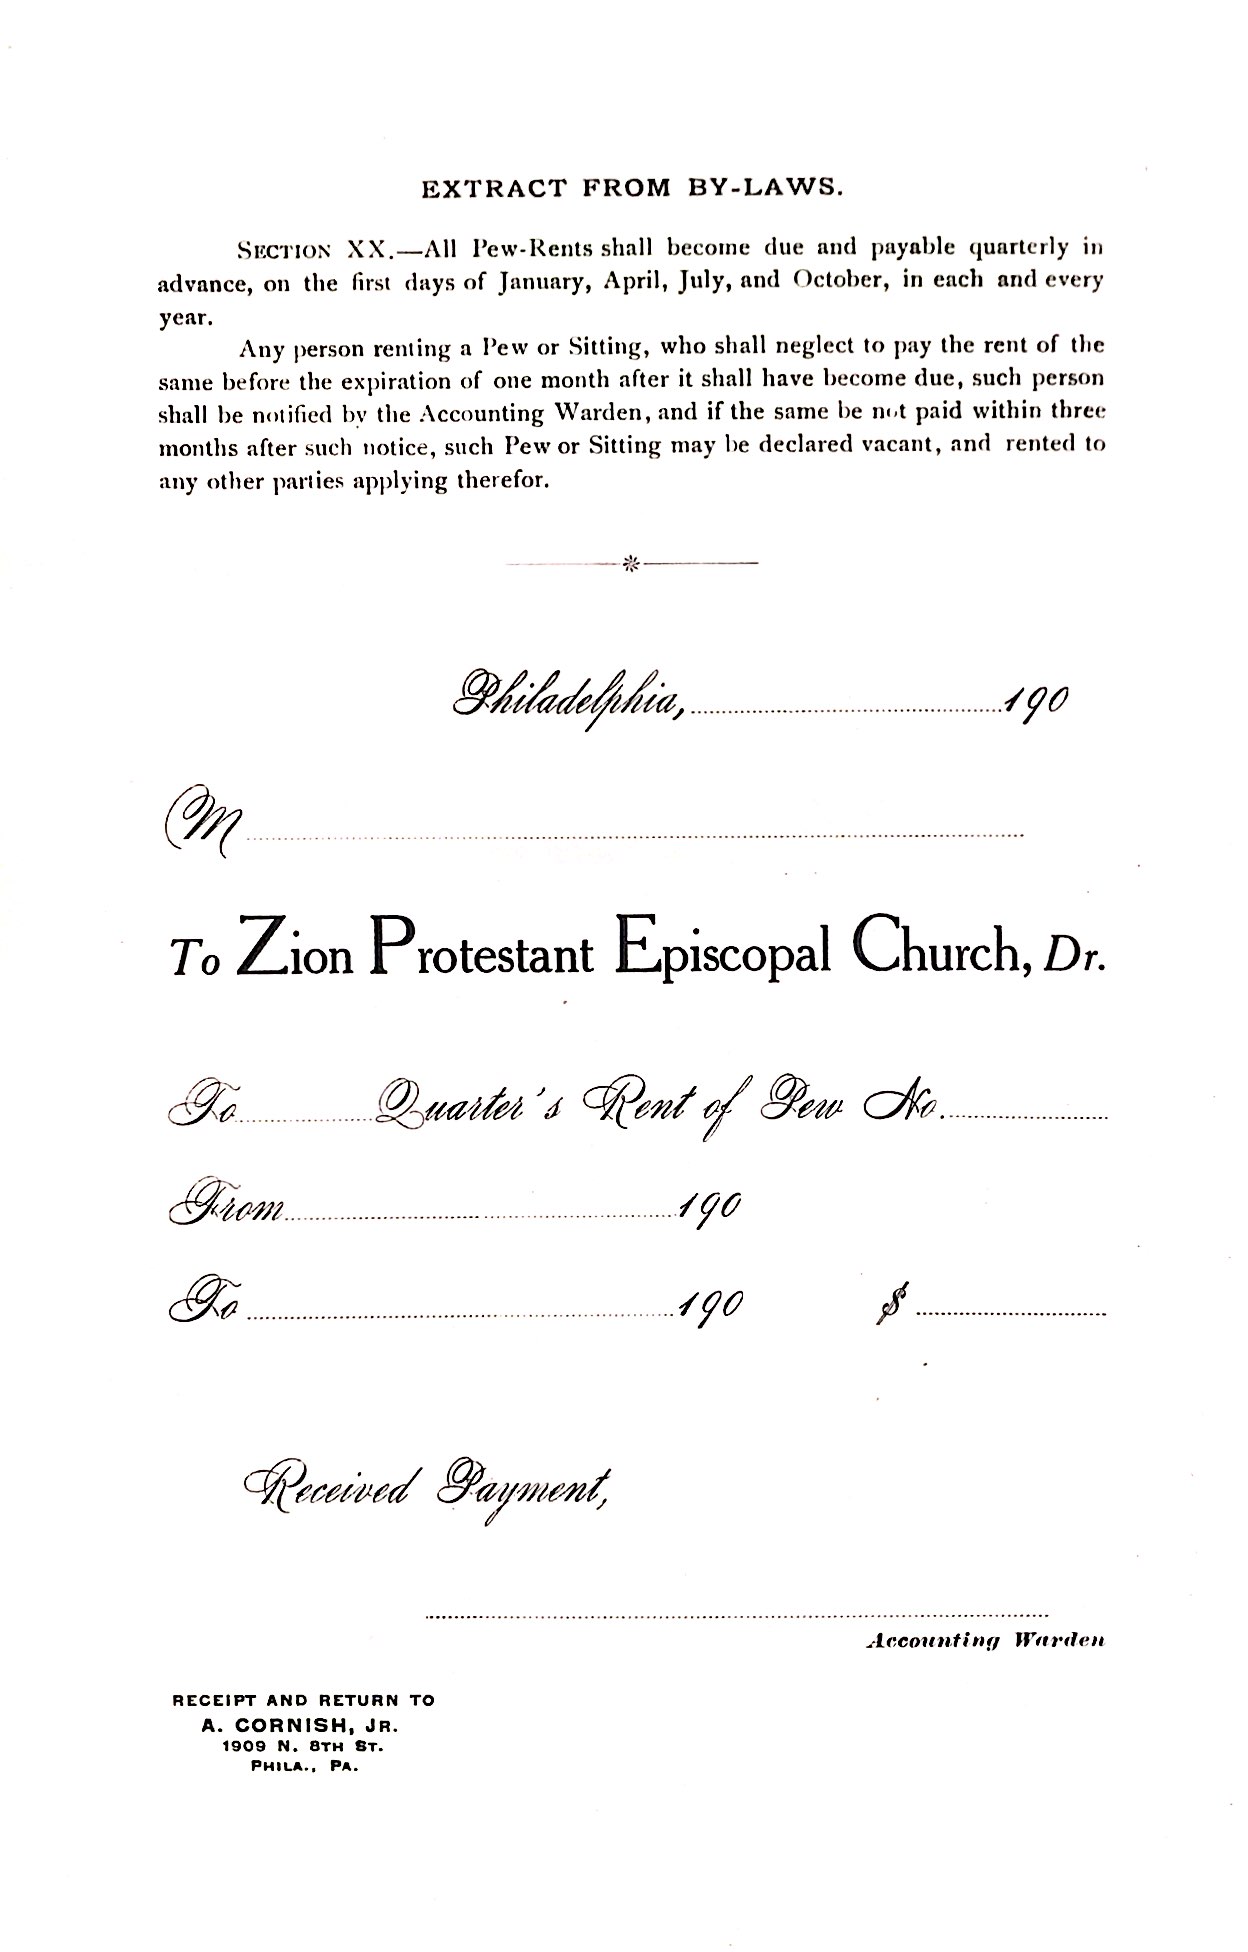 EXTRACT FROM BY-LAWS.
SECTION XX.—All Pew-Rents shall become due and payable quarterly in
advance, on the first days of January, April, July, and October, in each and every
year.
Any person renting a Pew or Sitting, who shall neglect to pay the rent of the
same before the expiration of one month after it shall have become due, such person
shall be notified by the Accounting Warden, and if the same be not paid within three
months after such notice, such Pew or Sitting may be declared vacant, and rented to
any other parties applying therefor.
Philadelphia, 190
M
To Zion Protestant Episcopal Church, Dr.
To Quarter's Rent of Pew No.
From 190
To 190 $
Received Payment,
Accounting Warden
RECEIPT AND RETURN TO
A. CORNISH, JR.
1909 N. 8TH ST.
PHILA., PA.